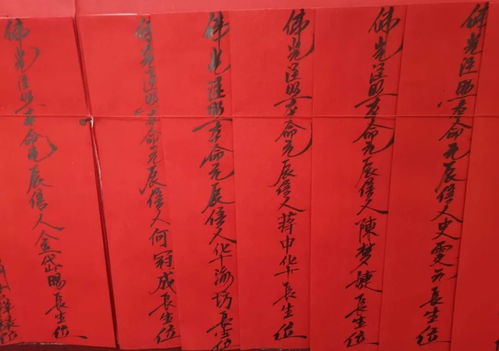 佛光注照本命元辰信人史雯元長生位
佛光注照本命元辰信人陳梦婕長生位
佛光注照本命元辰信人蒋申華長生位
佛光注照本命元辰信人華渝坊長生位
佛光注照本命元辰信人何冠成長生位
佛光注照本命元辰信人金黛賜長生位